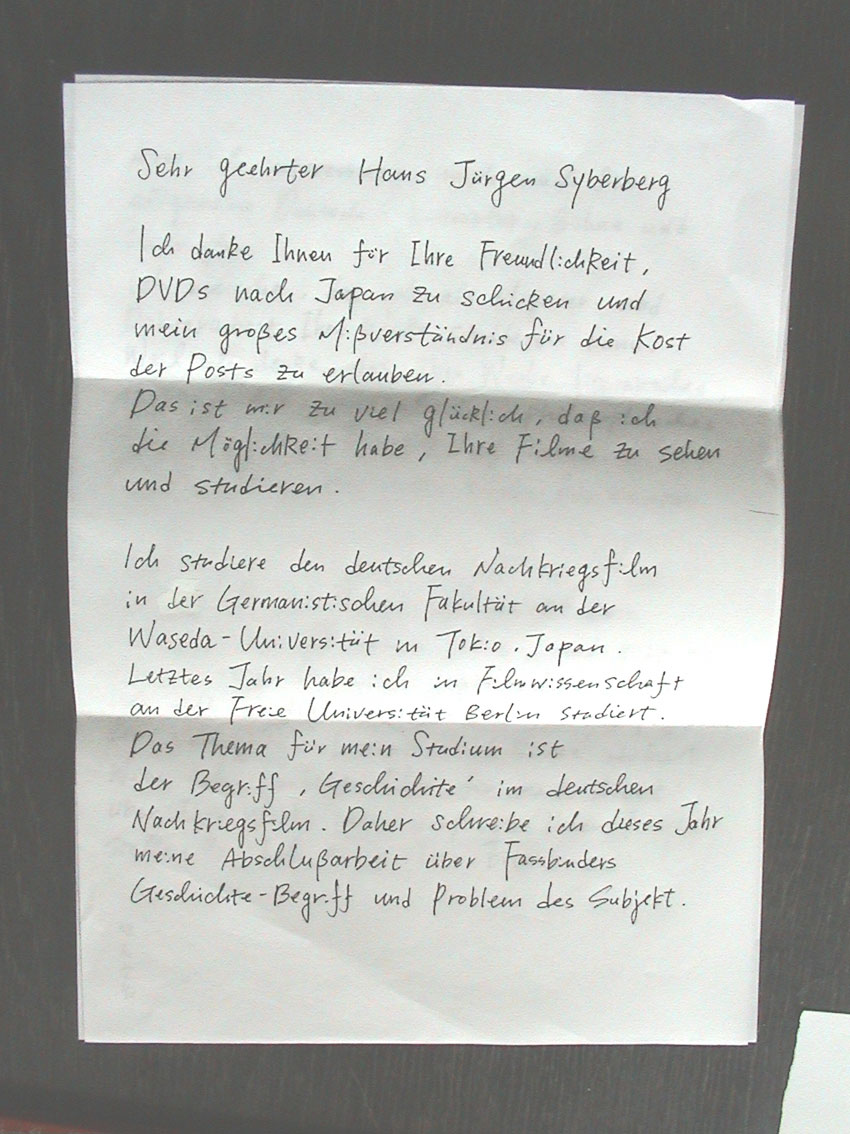 Sehr geehrter Hans Jürgen Syberberg
Ich danke Ihnen für Ihre Freundlichkeit,
DVDs nach Japan zu schicken und
mein großes Mißverständnis für die Kost
der Posts zu erlauben.
Das ist mir zu viel glücklich, daß ich
die Möglichkeit habe, Ihre Filme zu sehen
und studieren.
Ich studiere den deutschen Nachkriegsfilm
in der Germanistischen Fakultät an der
Waseda-Universität in Tokio, Japan.
Letztes Jahr habe ich in Filmwissenschaft
an der Freie Universität Berlin studiert.
Das Thema für mein Studium ist
der Begriff ‚Geschichte' im deutschen
Nachkriegsfilm. Daher schreibe ich dieses Jahr
meine Abschlußarbeit über Fassbinders
Geschichte-Begriff und Problem des Subjekt.